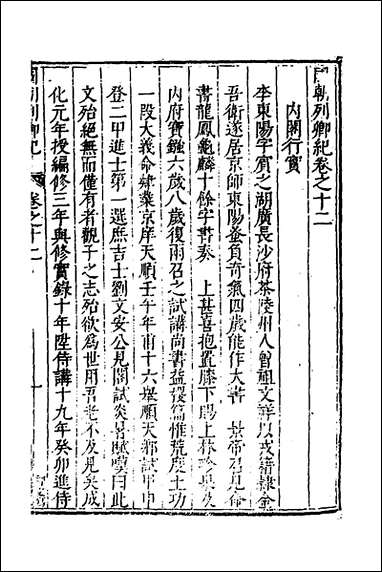 國朝列卿紀卷之十二
內閣行實
李東陽字賓之湖廣長沙府茶陵州人曾祖文祥以戎籍隸金
吾衛遂居京師東陽蚤負奇氣四歲能作大書 景帝召見命
書龍鳳龜麟十餘字書奏 上甚喜抱置膝下賜上林珍果及
內府寶鏹六歲八歲復兩召之試講尚書益稷篇惟荒度土功
一段大義命肄業京庠天順壬午年甫十六舉順天鄉試甲申
登二甲進士第一選庶吉士劉文安公見閣試炎暑賦嘆曰此
文殆絕無而僅有者觀子之志殆欲為世用吾老不及見矣成
化元年授編修三年與修實錄十年陞侍講十九年癸卯進侍
國朝列卿紀 卷之十二 一